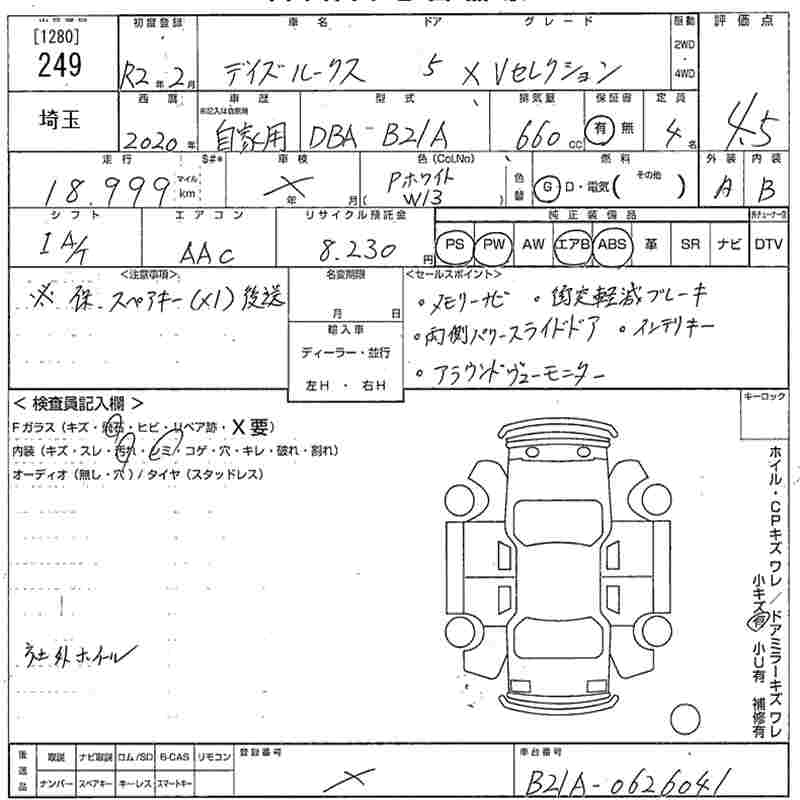 [1280]
249
埼玉
初度登録 車名 ドア グレード 駆動 評価点
R2年2月 デイズルークス 5 X Vセレクション 2WD ・ 4WD
4.5
西暦 車歴 型式 排気量 保証書 定員
2020年 自家用 DBA-B21A 660cc 有 無 4名
走行 $#* 車検 色(CoLNo) 燃料 外装 内装
18,999 マイル km X 年 月 Pホワイト W13 色替 G D・電気( その他 ) A B
シフト エアコン リサイクル預託金 純正装備品
IA/T AAC 8.230円 PS PW AW エアB ABS 革 SR ナビ DTV
<注意事項> 名変期限 <セールスポイント>
※ 保、スペアキー(X1)後送
月 日
輸入車
ディーラー・並行
左H ・ 右H
・メモリーナビ ・衝突軽減ブレーキ
・両側パワースライドドア ・インテリキー
・アラウンドヴューモニター
キーロック
<検査員記入欄>
Fガラス(キズ・飛石・ヒビ・リペア跡・X要)
内装(キズ・スレ・汚れ・シミ・コゲ・穴・キレ・破れ・割れ)
オーディオ(無し・穴)/タイヤ(スタッドレス)
社外ホイール
ホイル・CPキズワレ/ドアミラーキズワレ
小キズ有 小U有 補修有
後送品 取説 ナビ取説 ロム/SD B-CAS リモコン 登録番号 車台番号
ナンバー スペアキー キーレス スマートキー X B21A-0626041